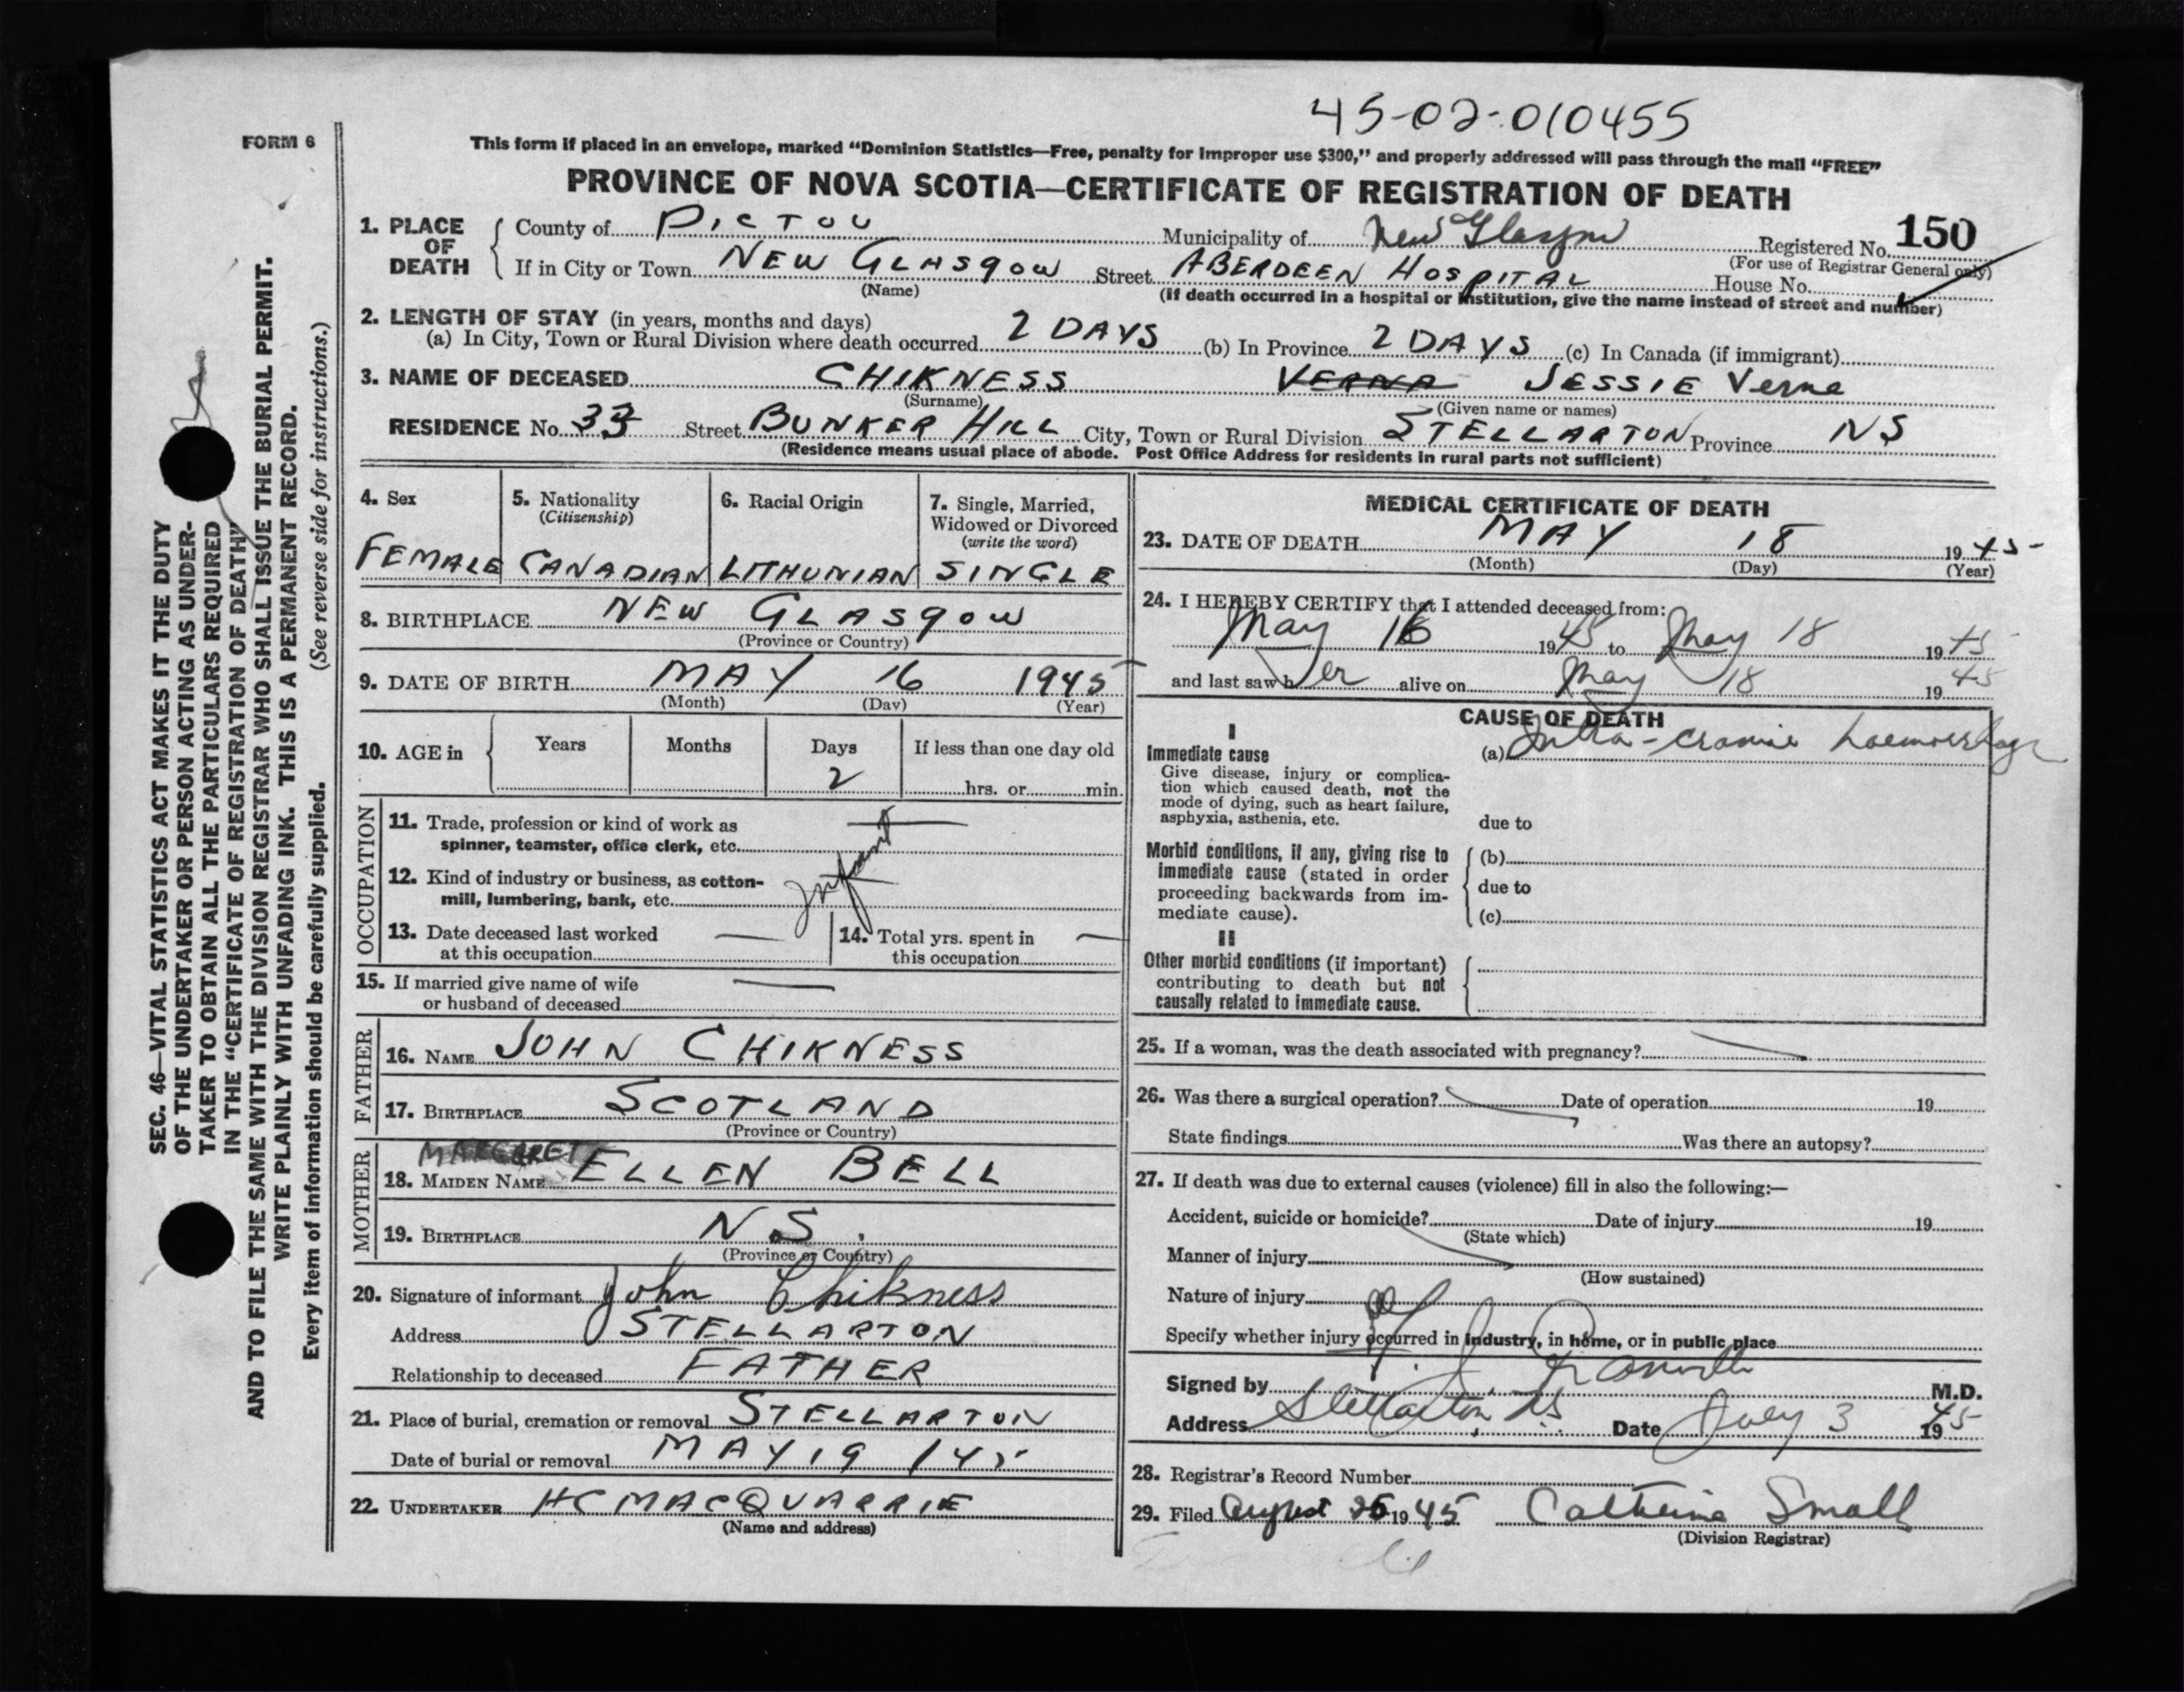 45-02-010455
FORM 6
This form if placed in an envelope, marked "Dominion Statistics—Free, penalty for improper use $300," and properly addressed will pass through the mail "FREE"
PROVINCE OF NOVA SCOTIA—CERTIFICATE OF REGISTRATION OF DEATH
1. PLACE OF DEATH { County of PICTOU Municipality of New Glasgow Registered No. 150
(For use of Registrar General only)
If in City or Town NEW GLASGOW Street ABERDEEN HOSPITAL House No.
(Name) (If death occurred in a hospital or institution, give the name instead of street and number)
2. LENGTH OF STAY (in years, months and days)
(a) In City, Town or Rural Division where death occurred 2 DAYS (b) In Province 2 DAYS (c) In Canada (if immigrant)
3. NAME OF DECEASED CHIKNESS VERNA JESSIE Verna
(Surname) (Given name or names)
RESIDENCE No. 33 Street BUNKER HILL City, Town or Rural Division STELLARTON Province NS
(Residence means usual place of abode. Post Office Address for residents in rural parts not sufficient)
4. Sex 5. Nationality (Citizenship) 6. Racial Origin 7. Single, Married, Widowed or Divorced (write the word)
FEMALE CANADIAN LITHUNIAN SINGLE
8. BIRTHPLACE NEW GLASGOW
(Province or Country)
9. DATE OF BIRTH MAY 16 1945
(Month) (Day) (Year)
10. AGE in { Years Months Days If less than one day old
2 hrs. or min.
OCCUPATION
11. Trade, profession or kind of work as
spinner, teamster, office clerk, etc.
Infant
12. Kind of industry or business, as cotton-
mill, lumbering, bank, etc.
13. Date deceased last worked
at this occupation
14. Total yrs. spent in
this occupation
15. If married give name of wife
or husband of deceased
FATHER
16. NAME JOHN CHIKNESS
17. BIRTHPLACE SCOTLAND
(Province or Country)
MOTHER
MARGARET
18. MAIDEN NAME ELLEN BELL
19. BIRTHPLACE N.S.
(Province or Country)
20. Signature of informant John Chikness
Address STELLARTON
Relationship to deceased FATHER
21. Place of burial, cremation or removal STELLARTON
Date of burial or removal MAY 19 /45
22. UNDERTAKER HC MACQUARRIE
(Name and address)
MEDICAL CERTIFICATE OF DEATH
23. DATE OF DEATH MAY 18 1945
(Month) (Day) (Year)
24. I HEREBY CERTIFY that I attended deceased from:
May 16 1945 to May 18 1945
and last saw her alive on May 18 1945
CAUSE OF DEATH
I
Immediate cause (a) Intra-cranial haemorrhage
Give disease, injury or complica-
tion which caused death, not the
mode of dying, such as heart failure,
asphyxia, asthenia, etc.
due to
Morbid conditions, if any, giving rise to (b)
immediate cause (stated in order
proceeding backwards from im- due to
mediate cause). (c)
II
Other morbid conditions (if important)
contributing to death but not
causally related to immediate cause.
25. If a woman, was the death associated with pregnancy?
26. Was there a surgical operation? Date of operation 19
State findings Was there an autopsy?
27. If death was due to external causes (violence) fill in also the following:—
Accident, suicide or homicide? Date of injury 19
(State which)
Manner of injury
(How sustained)
Nature of injury
Specify whether injury occurred in industry, in home, or in public place
Signed by M.D.
Address Stellarton N.S. Date July 3 1945
28. Registrar's Record Number
29. Filed August 25 1945 Catherine Small
(Division Registrar)
SEC. 46—VITAL STATISTICS ACT MAKES IT THE DUTY
OF THE UNDERTAKER OR PERSON ACTING AS UNDER-
TAKER TO OBTAIN ALL THE PARTICULARS REQUIRED
IN THE "CERTIFICATE OF REGISTRATION OF DEATH"
AND TO FILE THE SAME WITH THE DIVISION REGISTRAR WHO SHALL ISSUE THE BURIAL PERMIT.
WRITE PLAINLY WITH UNFADING INK. THIS IS A PERMANENT RECORD.
Every item of information should be carefully supplied. (See reverse side for instructions.)